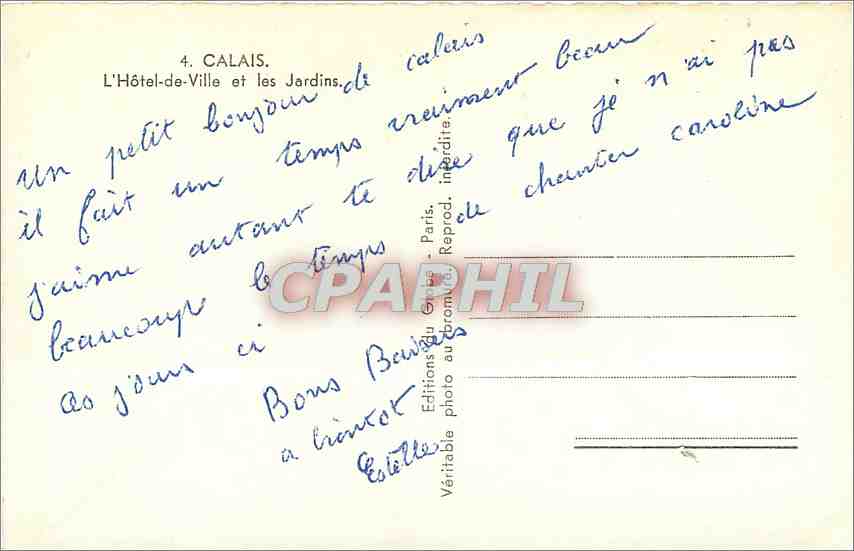 4. CALAIS.
L'Hôtel-de-Ville et les Jardins.
un petit bonjour de calais
il fait un temps vraiment beau
j'aime autant te dire que je n'ai pas
beaucoup le temps de chanter caroline
ces jours ci
Bons Baisers
a bientot
Estelle
CPAPHIL
Editions du Globe - Paris.
Véritable photo au bromure. Reprod. interdite.